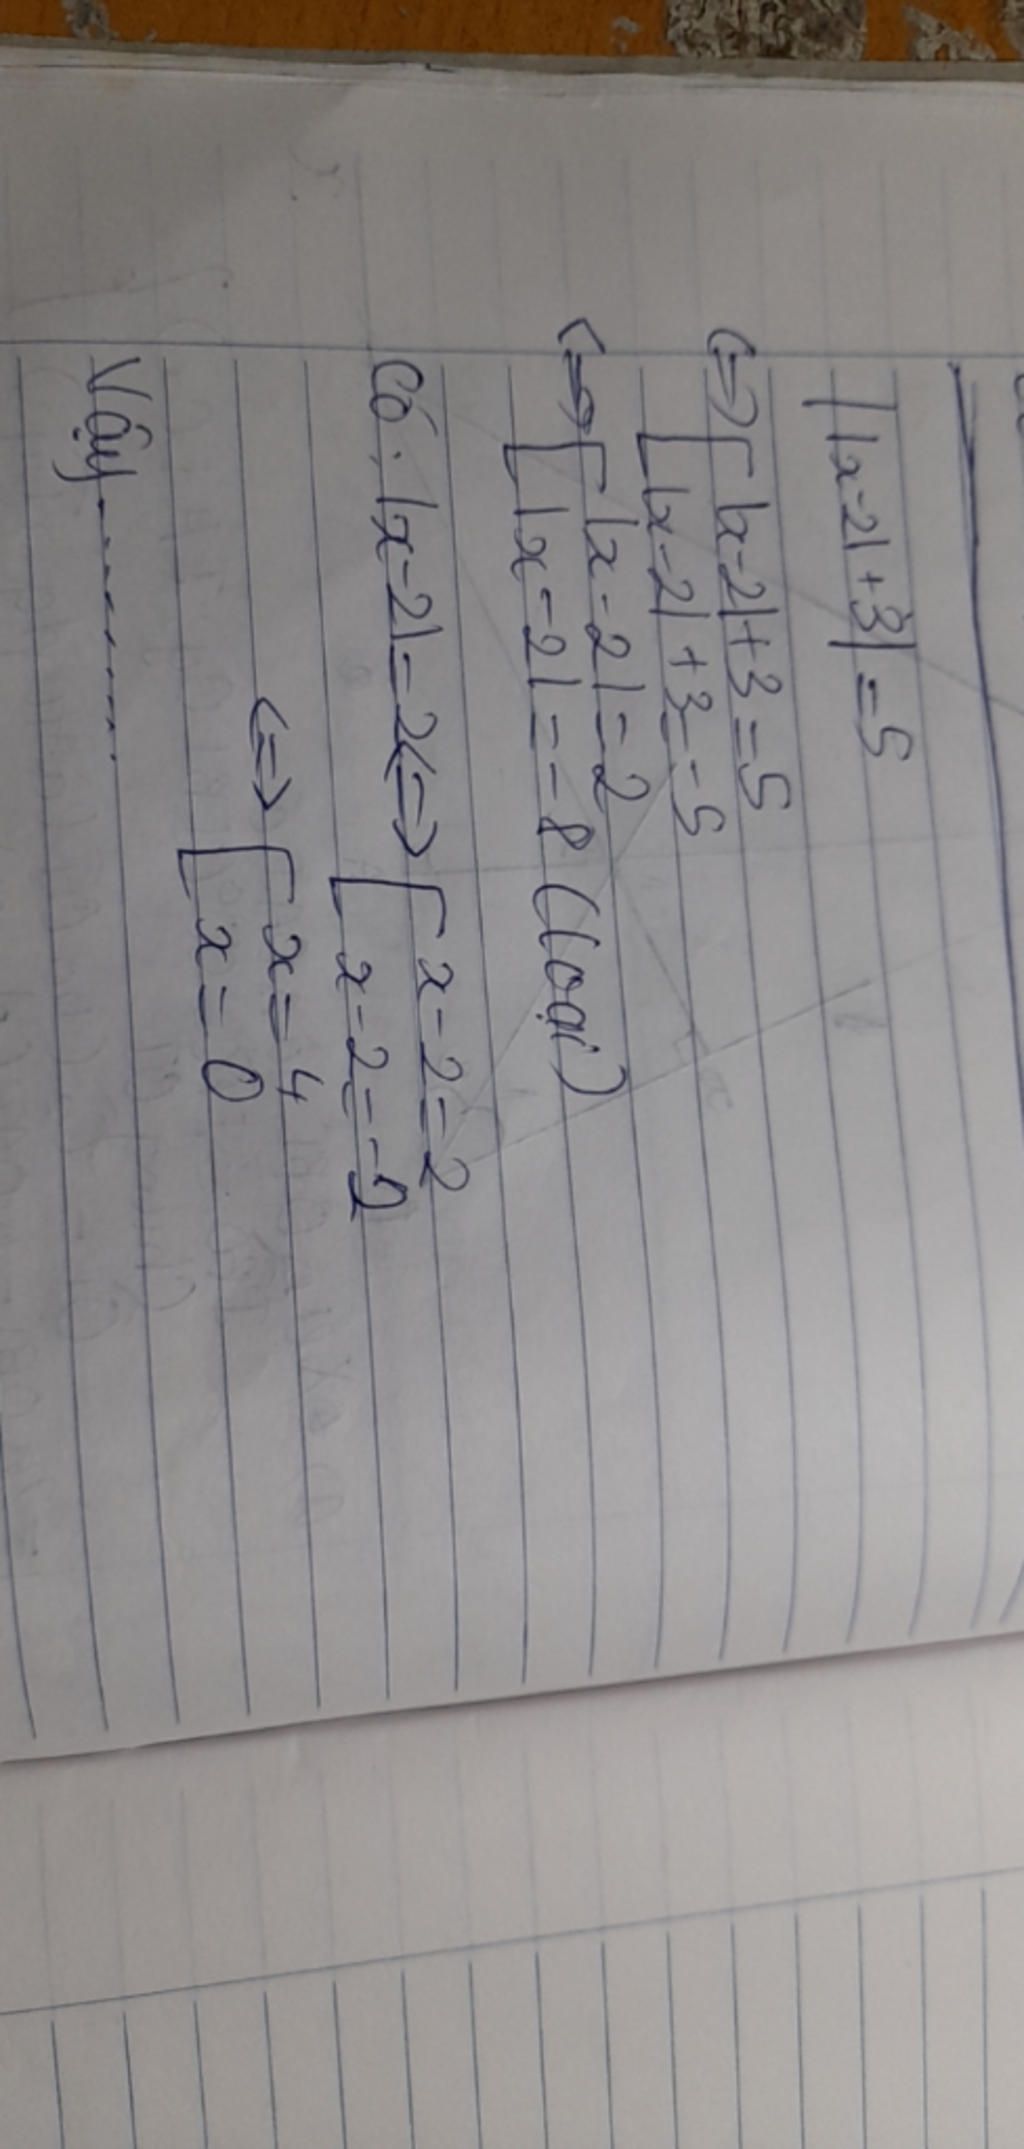 ||x-2|+3|=5
<=> [ |x-2|+3=5
[ |x-2|+3=-5
<=> [ |x-2|=2
[ |x-2|=-8 (loại)
Có: |x-2|=2 <=> [ x-2=2
[ x-2=-2
<=> [ x=4
[ x=0
Vậy..........